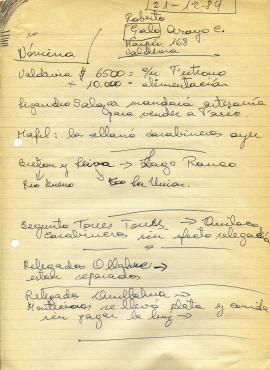 21-12-84
Roberto
Galo Arroyo C.
Maipú 168
Valdivia
Nómina
Valdivia $ 6500 = c/u
+ 10.000 = alimentación
Alejandro Salazar mandará artesanía
para vender a Paseo.
Mafil: la allanó carabineros ayer
y Leiva → Lago Ranco
Río Bueno La Unión.
Segundo Torres Torres → Quilaco
carabineros sin efecto relegada
Relegados Ollague →
estan separados
Relegada Quillahua →
se llevó plata y comida
sin pagar la luz →